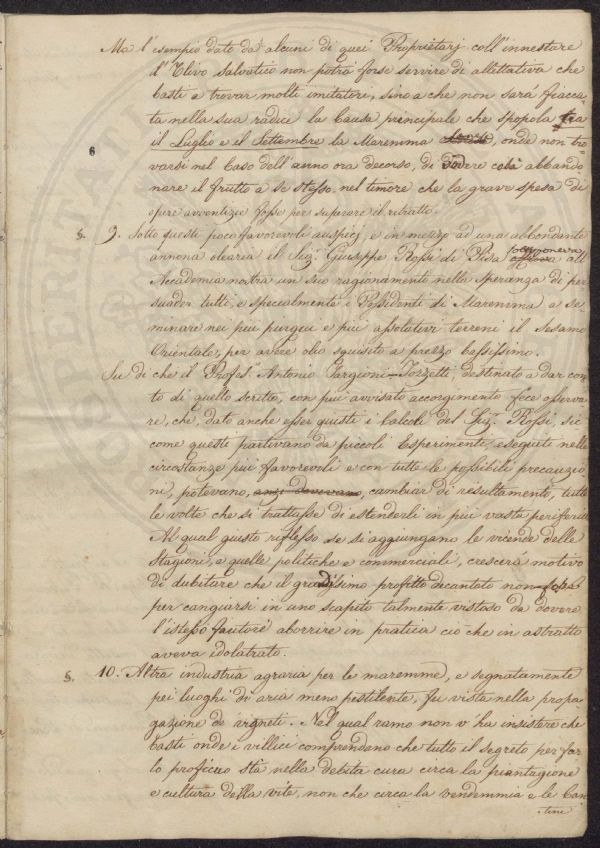 Ma l'esempio dato da alcuni di quei Proprietarj coll'innestare
l'Olivo Salvatico non potrà forse servire di allettativa che
basti a trovar molti imitatori, sino a che non sarà fiacca-
ta nella sua radice la Causa principale che spopola tra
il Luglio e il Settembre la Maremma, onde non tro-
6
varsi nel Caso dell'anno ora decorso, di dovere colà abbando
nare il frutto a se stesso nel timore che la grave spesa di
opere avventizie fosse per superare il ritratto.
§. 9. Sotto questi poco favorevoli auspicj, e in mezzo ad una abbondante
annona olearia il Sig.r Giuseppe Rossi di Pisa offriva all'
Accademia nostra un suo ragionamento nella speranza di per
suader tutti, e specialmente i Possidenti di Maremma a se-
minare nei più pingui e più assolativi terreni il Sesamo
Orientale, per avere olio squisito a prezzo bassissimo.
Su di che il Profess.r Antonio Targioni-Tozzetti, destinato a dar con
to di quello scritto, con più avvisato accorgimento fece osserva
re, che, dato anche esser giusti i Calcoli del Sig.r Rossi, sic
come questi partivano da piccoli Esperimenti eseguiti nelle
circostanze più favorevoli e con tutte le possibili precauzio
ni, potevano, anzi dovevano, cambiar di resultamento, tutte
le volte che si trattasse di estenderli in più vasta periferia.
Al qual giusto riflesso se si aggiungano le vicende delle
Stagioni, e quelle politiche e commerciali, crescerà motivo
di dubitare che il grandissimo profitto decantato non fosse
per cangiarsi in uno scapito talmente vistoso da dovere
l'istesso fautore aborrire in pratica ciò che in astratto
aveva idolatrato.
§. 10. Altra industria agraria per le maremme, e segnatamente
pei luoghi di aria meno pestilente, fu vista nella propa-
gazione di vigneti. Nel qual ramo non v'ha insistere che
basti onde i villici comprendano che tutto il segreto per far
lo proficuo stà nella debita cura circa la piantagione
e cultura della vite, non che circa la vendemmia e le Can
tine